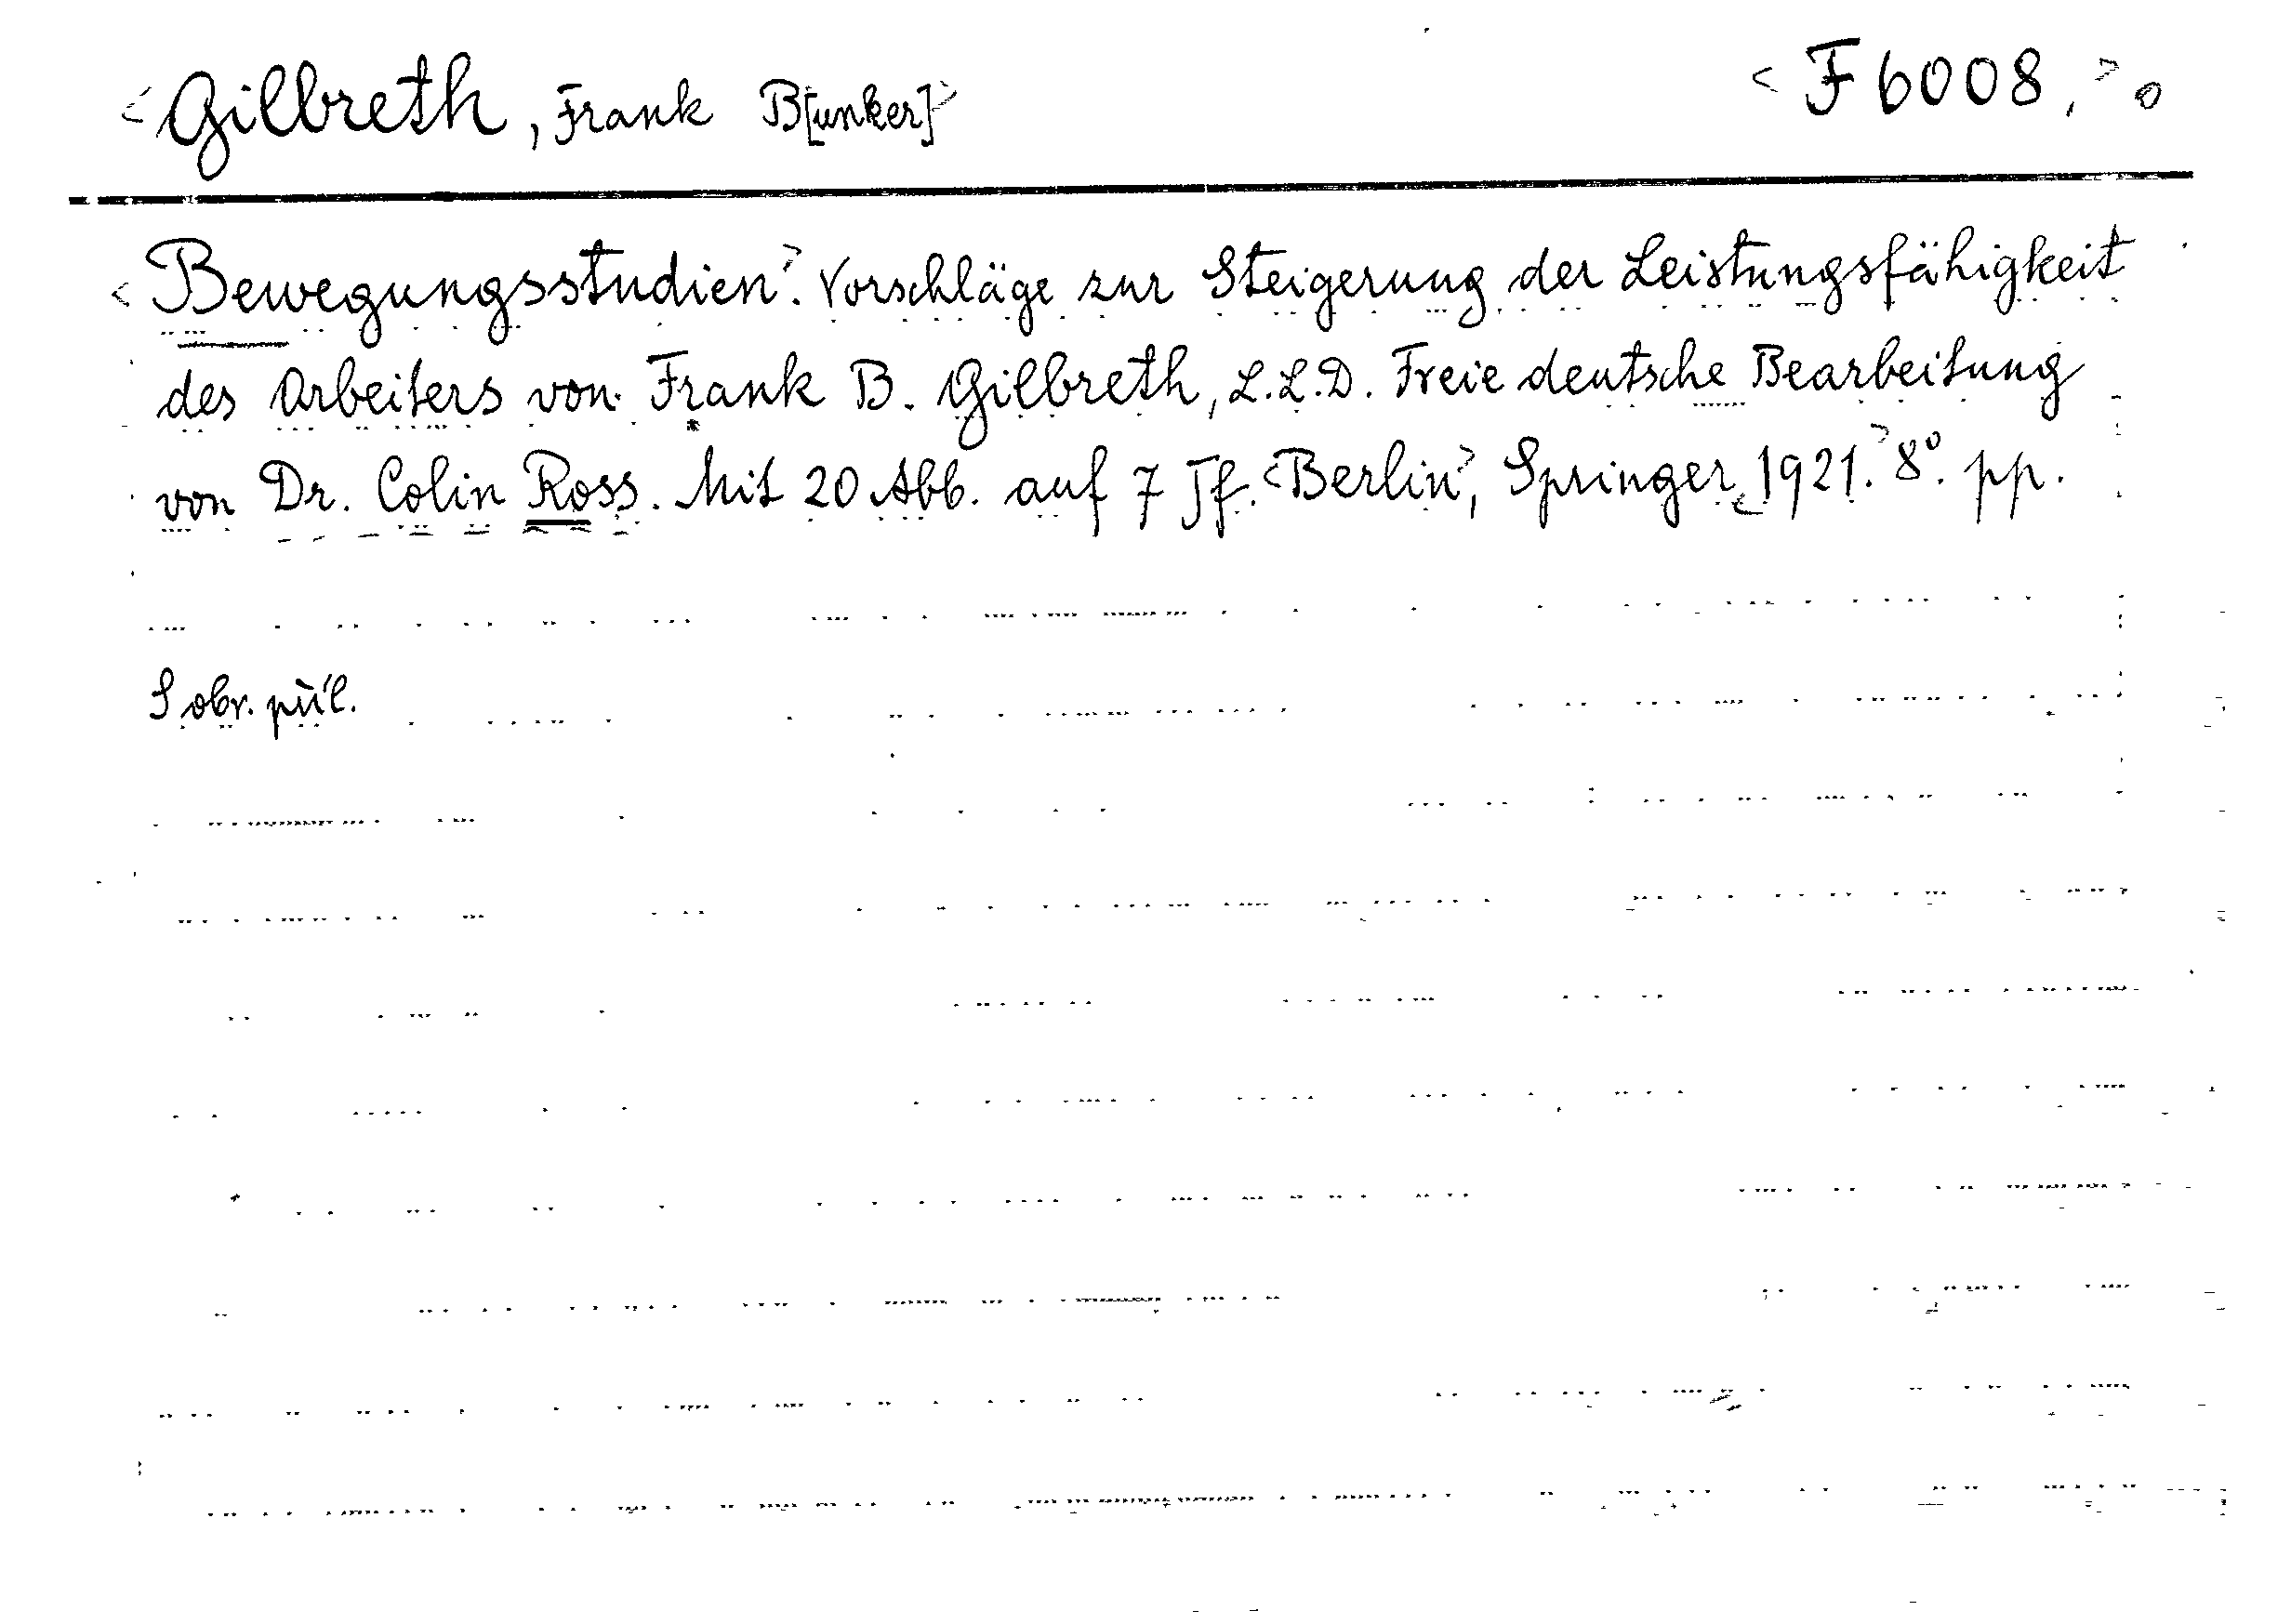 <Gilbreth, Frank B[unker]> <F 6008,> o
<Bewegungsstudien>. Vorschläge zur Steigerung der Leistungsfähigkeit
des Arbeiters von Frank B. Gilbreth, L.L.D. Freie deutsche Bearbeitung
von Dr. Colin Ross. Mit 20 Abb. auf 7 Tf. <Berlin>, Springer <1921.> 8°. pp.
S obr. příl.